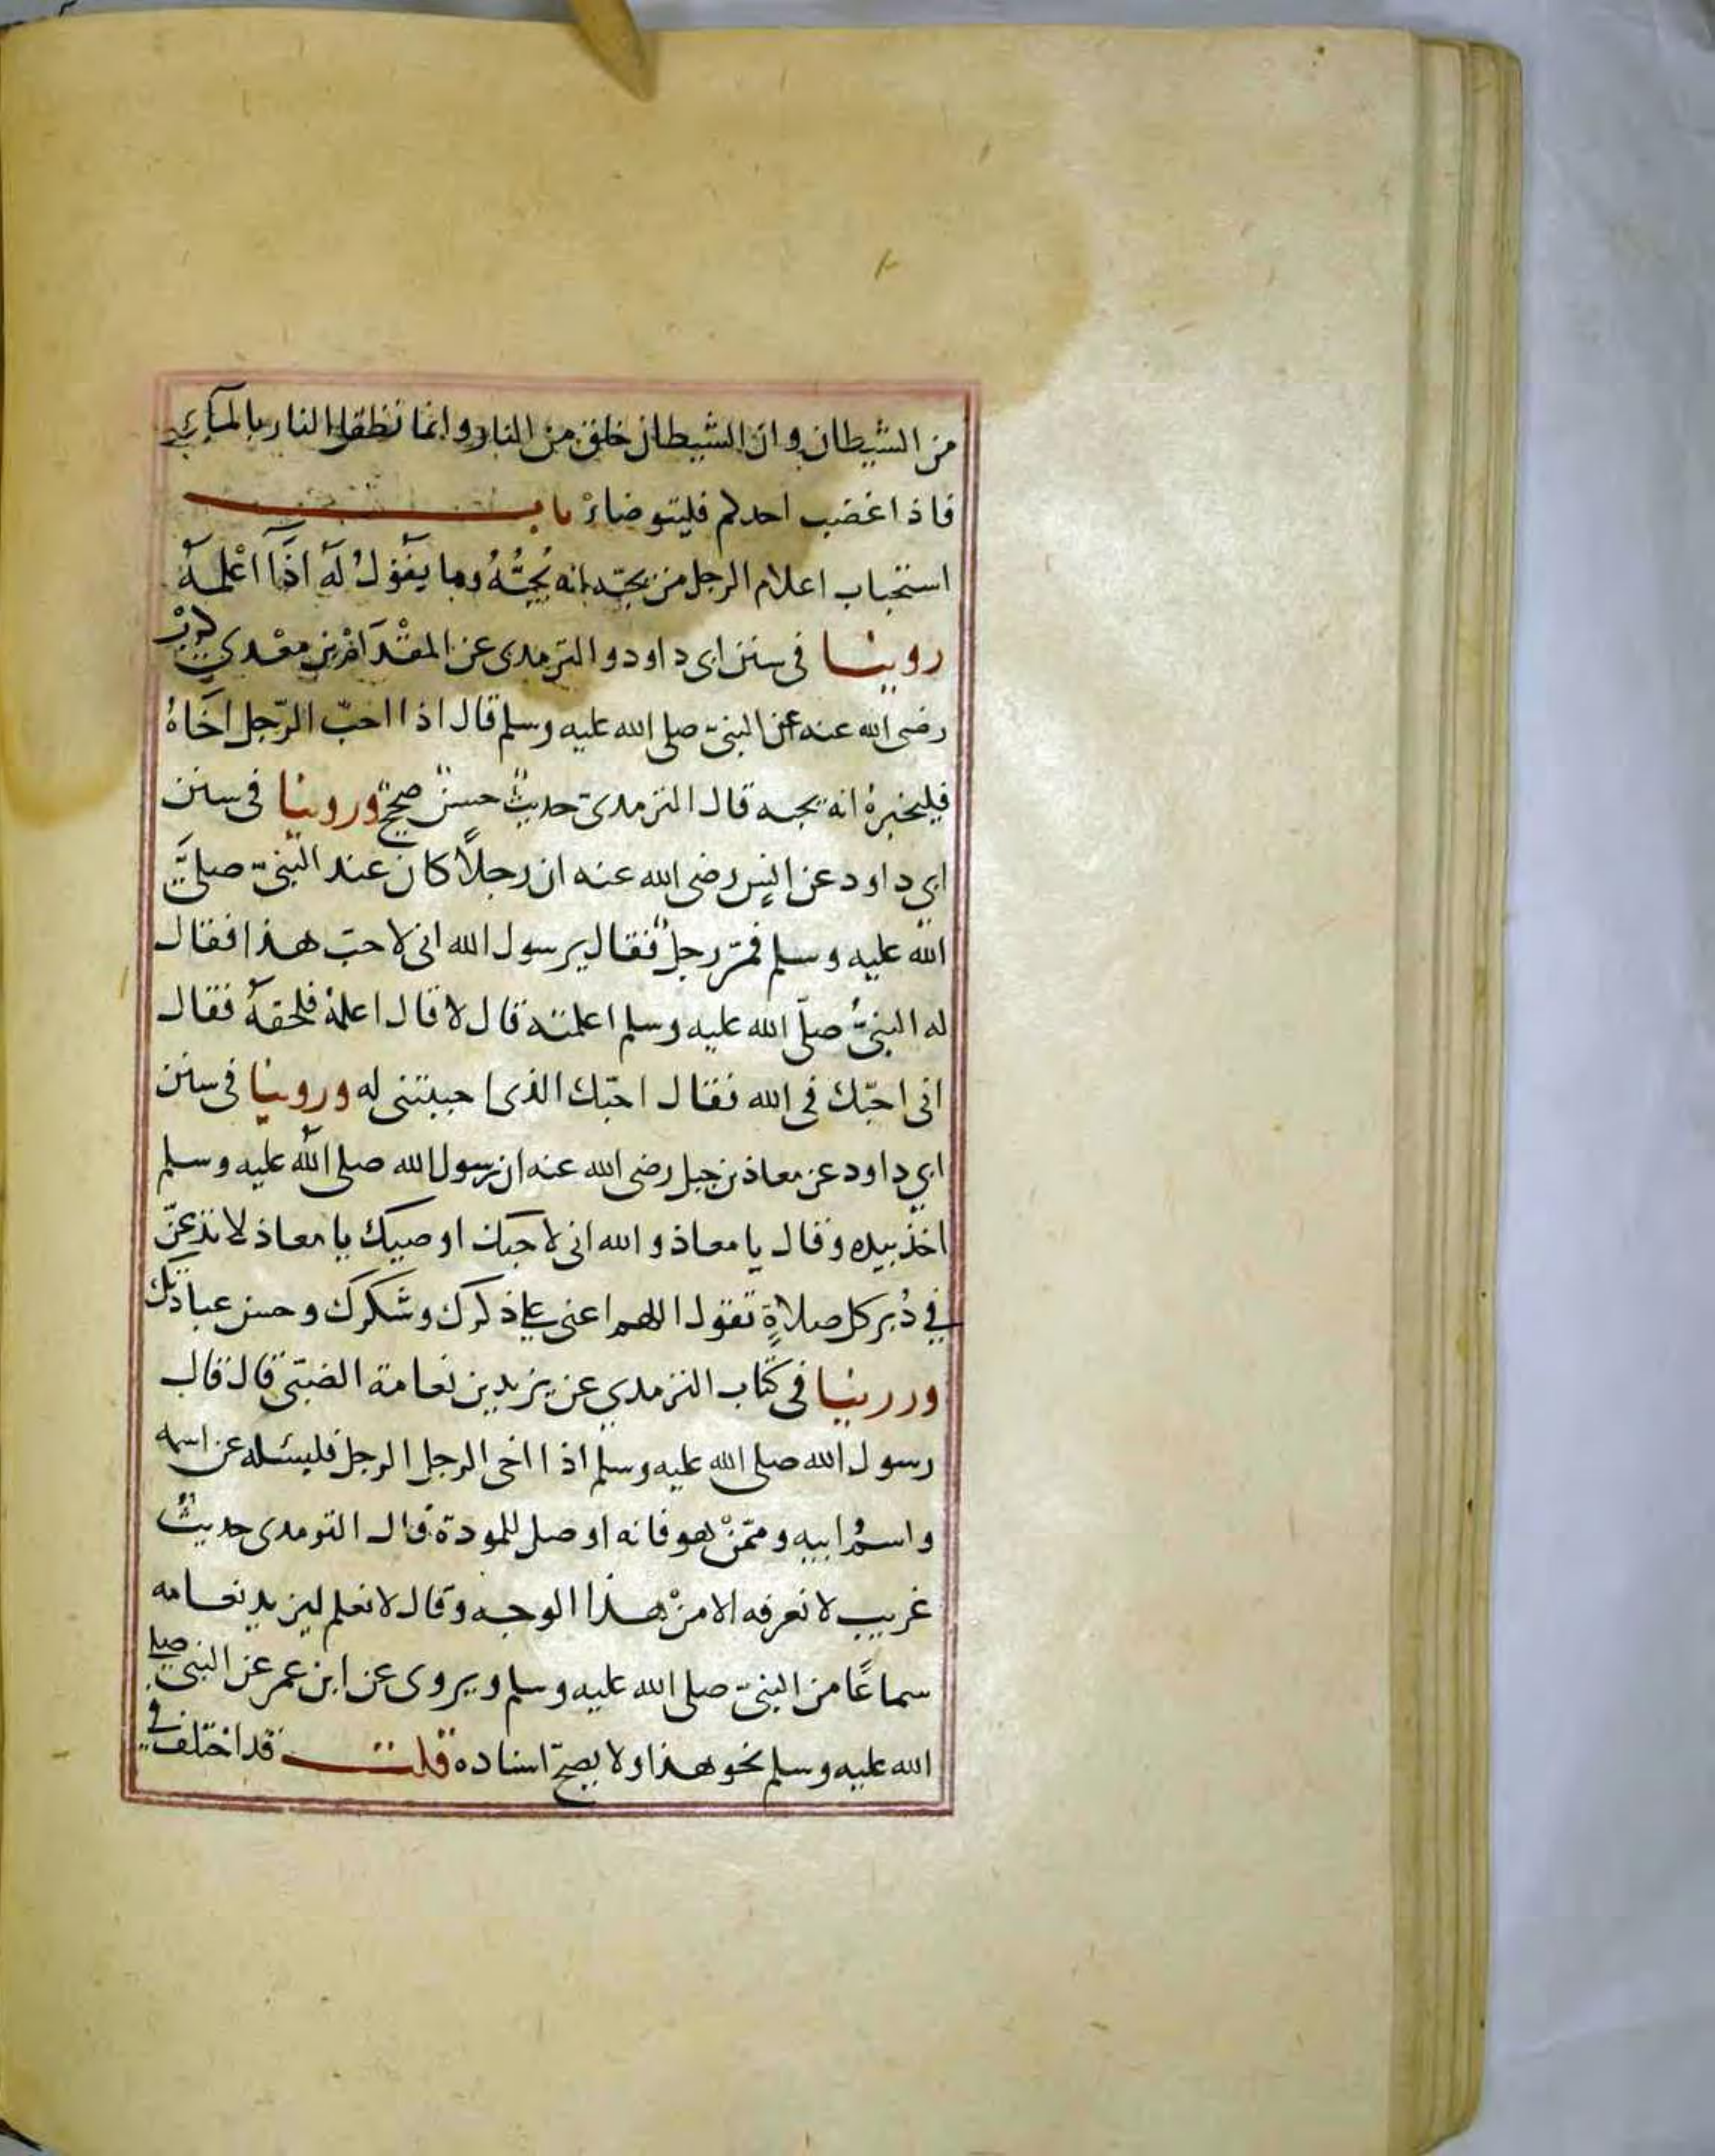 من الشيطان وان الشيطان خلق من النار وانما تطفؤا النار بالمآء
فاذا غضب احدكم فليتوضاءْ باب
استحباب اعلام الرجل من يحبّه بانه يُحِبُّهُ وما يقول لهَ اذَا اعْلمهَ
روينا فى سنن ابى داود والترمدى عن المقْدَام بن معْدي كرب
رضى الله عنه عن النبىّ صلى الله عليه وسلم قال اذا احبّ الرّجل اخَاهُ
فليخبرهُ انه يحبه قال الترمدىّ حديثٌ حسنٌ صحيحٌ وروينا فى سنن
ابي داود عن انس رضى الله عنه ان رجلاً كان عند النبىّ صلىَّ
الله عليه وسلم فمرّ رجلٌ فقال يرسول الله انى لاحبّ هذا فقال
له النبىُّ صلّى الله عليه وسلم اعلمته قال لا قال اعلمهُ فلحقهَ فقال
انى احبّك فى الله فقال احبّك الذى احببتنى له وروينا فى سنن
ابي داود عن معاذ بن جبل رضى الله عنه ان رسول الله صلى الله عليه وسلم
اخذ بيده وقال يا معاذ والله انى لاحبك اوصيك يا معاذ لا تدعنّ
في دُبر كل صلاةٍ تقول اللهم اعنى علي ذكرك وشَكرك وحسن عبادتك
وروينا فى كتاب الترمدي عن يزيد بن نعامة الضبّى قال قال
رسول الله صلى الله عليه وسلم اذا اخى الرجل الرجل فليسئله عن اسمه
واسمُ ابيه وممّنْ هو فانه اوصل للمودة قال الترمدى حديثٌ
غريب لا نعرفه الا منْ هذا الوجه وقال لا نعلم ليزيد نعامه
سماعًا من النبىّ صلى الله عليه وسلم ويروى عن ابن عمر عن النبى صلى
الله عليه وسلم نحو هذا ولا يصحّ اسناده قلت قد اختلف في